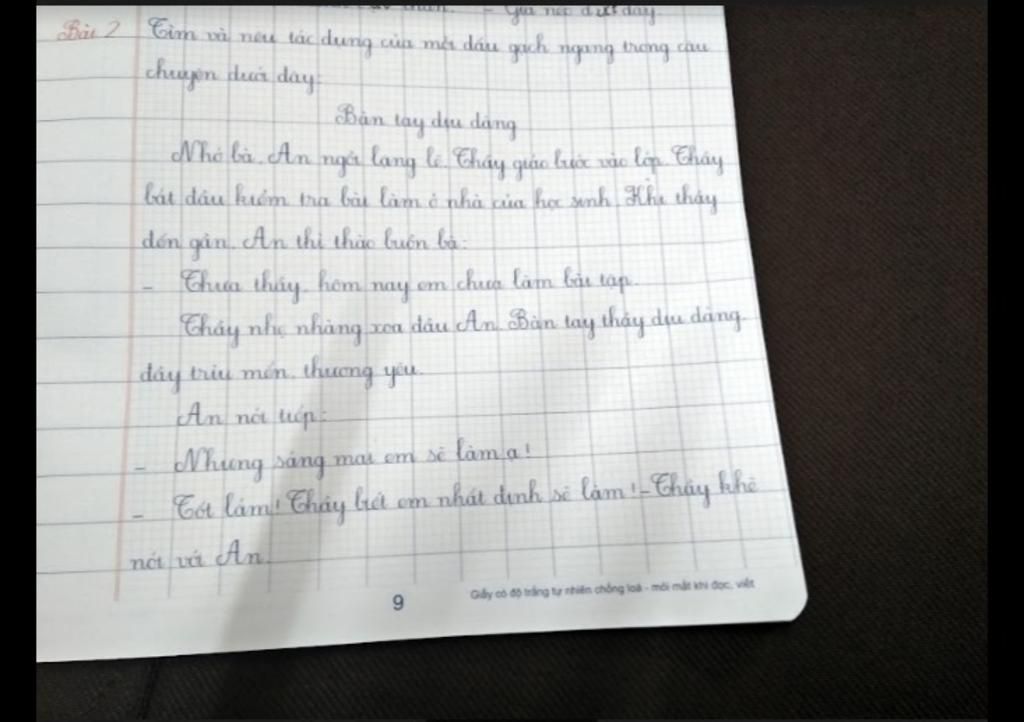 Giá nào dưới dây.
Bài 2 Tìm và nêu tác dụng của mỗi dấu gạch ngang trong câu
chuyện dưới dây:
Bàn tay dịu dàng
Nhớ bà, An ngồi lặng lẽ. Thầy giáo bước vào lớp. Thầy
bắt đầu kiểm tra bài làm ở nhà của học sinh. Khi thầy
đến gần, An thì thào buồn bã:
- Thưa thầy, hôm nay em chưa làm bài tập.
Thầy nhẹ nhàng xoa đầu An. Bàn tay thầy dịu dàng,
đầy trìu mến, thương yêu.
An nói tiếp:
- Nhưng sáng mai em sẽ làm ạ!
- Tốt lắm! Thầy biết em nhất định sẽ làm! - Thầy khẽ
nói với An.
9 Giấy có độ trắng tự nhiên chống loá - mỏi mắt khi đọc, viết